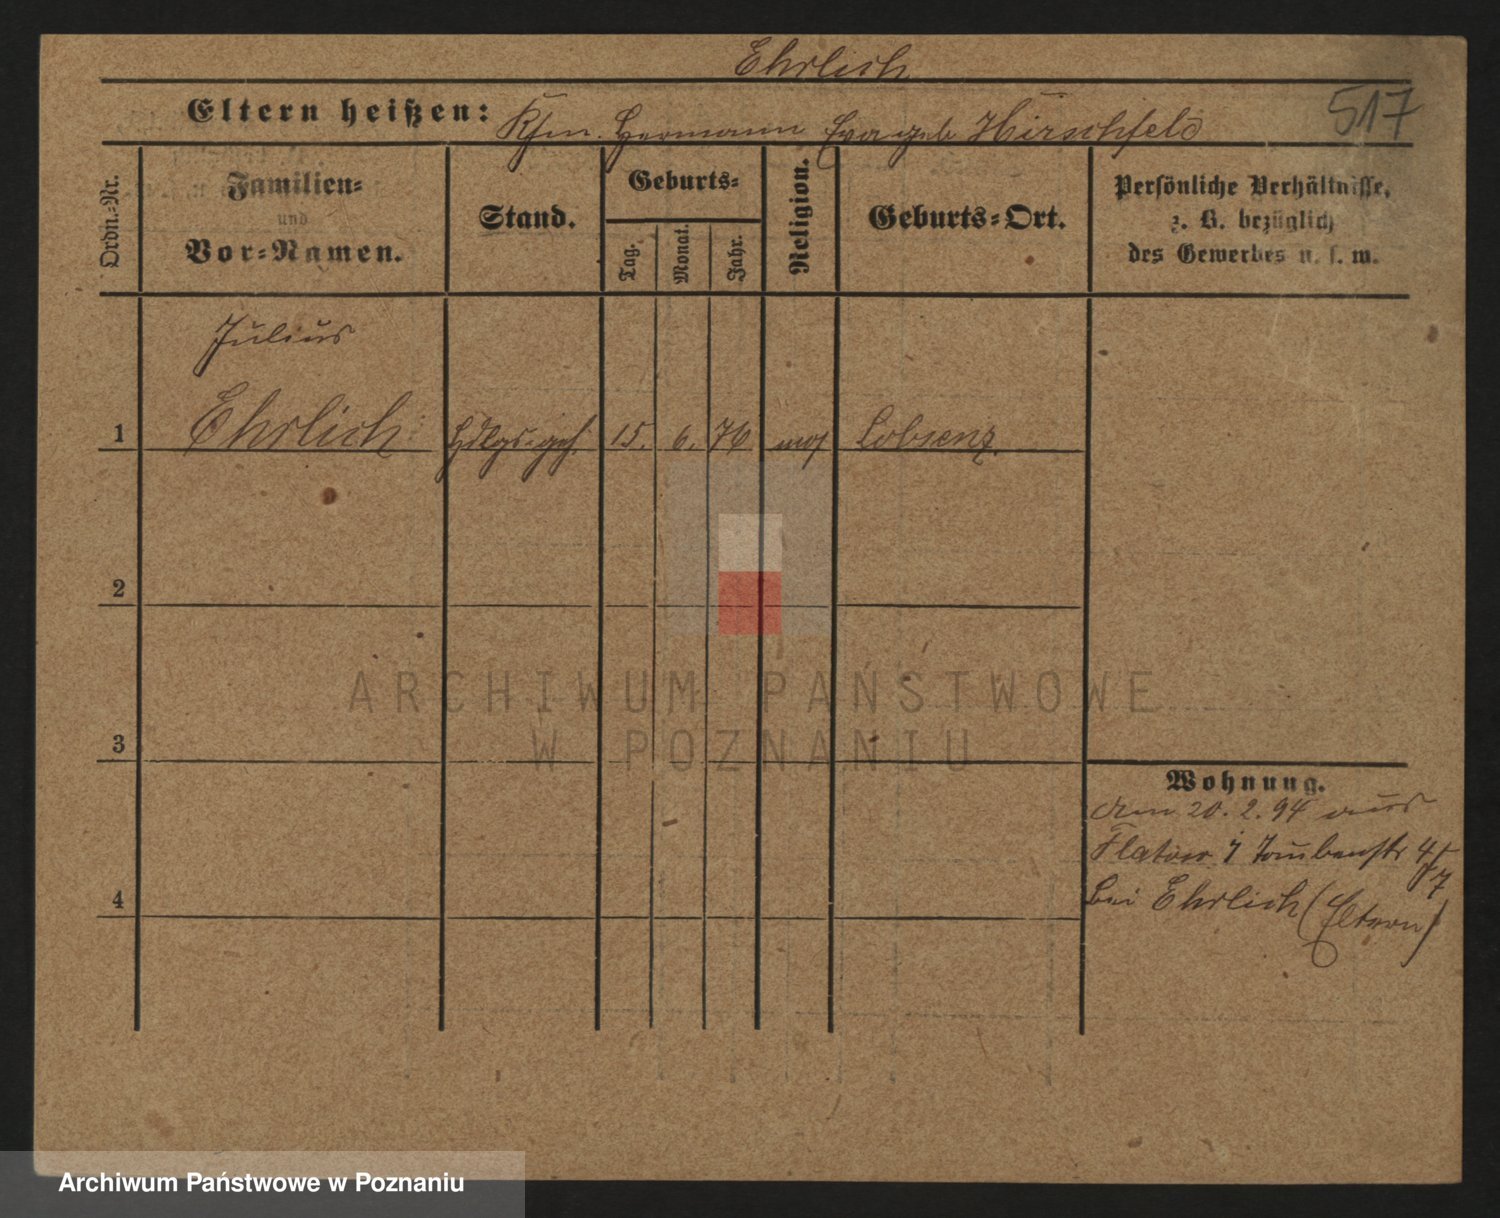 Ehrlich
517
Eltern heißen: Kfm. Hermann Eva geb Hirschfeld
Ordn.=Nr.
Familien=
und
Vor=Namen.
Stand.
Geburts=
Tag.
Monat.
Jahr.
Religion.
Geburts=Ort.
Persönliche Verhältnisse,
z. B. bezüglich
des Gewerbes u. s. w.
Julius
1 Ehrlich Hdlgs.geh. 15. 6. 76 mos Lobsenz.
2
3
4
Wohnung.
Am 20. 2. 94 aus
Flatow Taubenstr
bei Ehrlich (Eltern)
ARCHIWUM PAŃSTWOWE
W POZNANIU
Archiwum Państwowe w Poznaniu